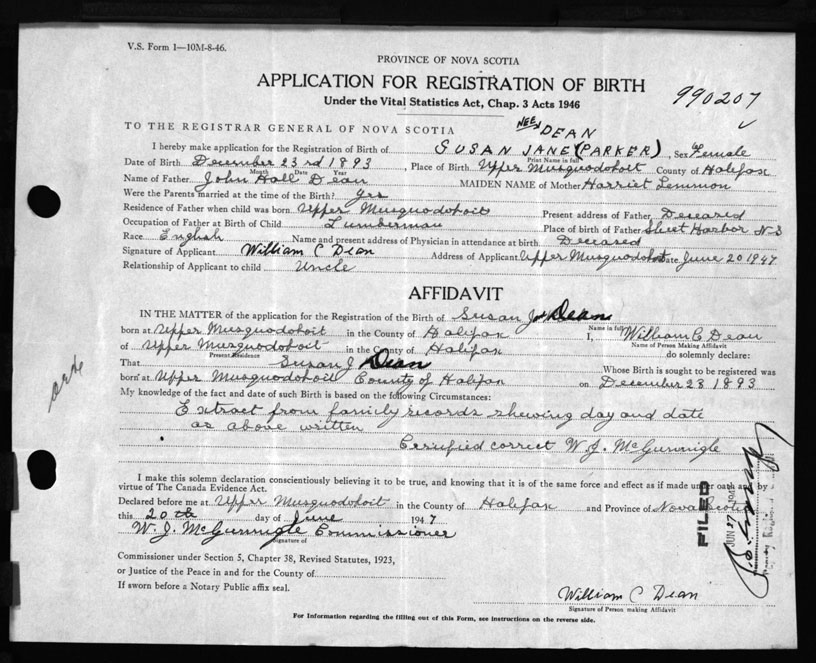 V.S. Form 1—10M-8-46.
PROVINCE OF NOVA SCOTIA
APPLICATION FOR REGISTRATION OF BIRTH
990207
Under the Vital Statistics Act, Chap. 3 Acts 1946
NEE DEAN
TO THE REGISTRAR GENERAL OF NOVA SCOTIA
I hereby make application for the Registration of Birth of SUSAN JANE (PARKER), Sex Female
Print Name in full
Date of Birth December 23rd 1893, Place of Birth Upper Musquodoboit County of Halifax
Month Date Year
Name of Father John Hall Dean MAIDEN NAME of Mother Harriet Lemmon
Were the Parents married at the time of the Birth? yes
Residence of Father when child was born Upper Musquodoboit Present address of Father Deceased
Occupation of Father at Birth of Child Lumberman Place of birth of Father Sheet Harbor N-S
Race English Name and present address of Physician in attendance at birth Deceased
Signature of Applicant William C Dean Address of Applicant Upper Musquodoboit Date June 20 1947
Relationship of Applicant to child Uncle
AFFIDAVIT
IN THE MATTER of the application for the Registration of the Birth of Susan J Dean
Name in full
born at Upper Musquodoboit in the County of Halifax I, William C Dean
Name of Person Making Affidavit
of Upper Musquodoboit in the County of Halifax do solemnly declare:
Present Residence
That Susan J Dean Whose Birth is sought to be registered was
born at Upper Musquodoboit County of Halifax on December 23 1893
My knowledge of the fact and date of such Birth is based on the following Circumstances:
Extract from family records shewing day and date
as above written
Certified correct W. J. McGunnigle
I make this solemn declaration conscientiously believing it to be true, and knowing that it is of the same force and effect as if made under oath and by
virtue of The Canada Evidence Act.
Declared before me at Upper Musquodoboit in the County of Halifax and Province of Nova Scotia
this 20th day of June 1947
W. J. McGunnigle Commissioner
Signature of
Commissioner under Section 5, Chapter 38, Revised Statutes, 1923,
or Justice of the Peace in and for the County of
If sworn before a Notary Public affix seal.
William C Dean
Signature of Person making Affidavit
For Information regarding the filling out of this Form, see instructions on the reverse side.
FILED
JUN 27 194